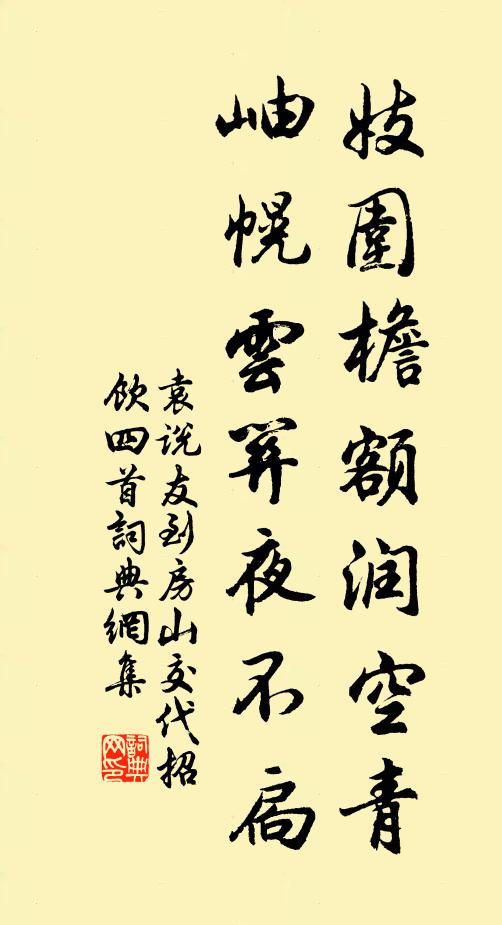 妓圍檐額潤空青
岫幌雲關夜不扃
袁說友到房山交代招
飲四首詞典網集
詞典
网印